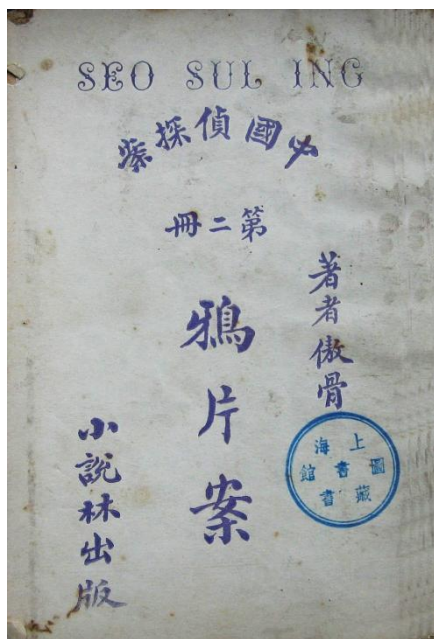 SEO SUL ING
中國偵探案
第二冊
著者傲骨
鴉片案
小說林出版
上海
圖書館
藏書